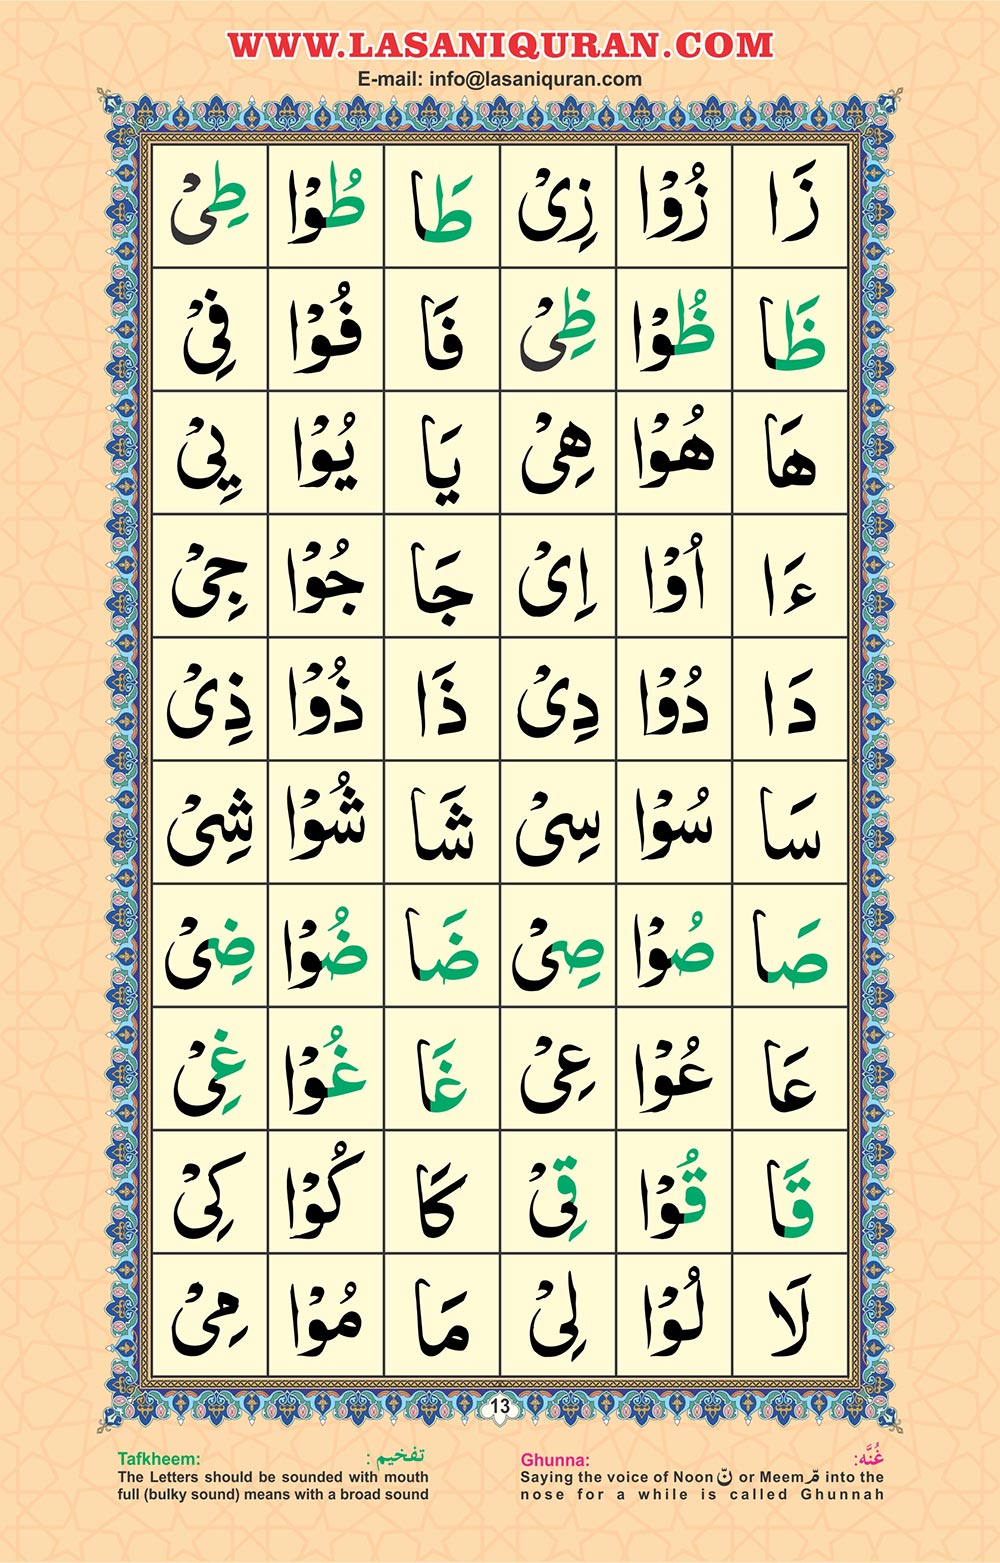 WWW.LASANIQURAN.COM
E-mail: info@lasaniquran.com
زَا زُوْا زِیْ طَا طُوْا طِیْ
ظَا ظُوْا ظِیْ فَا فُوْا فِیْ
هَا هُوْا هِیْ یَا یُوْا یِیْ
ءَا اُوْا اِیْ جَا جُوْا جِیْ
دَا دُوْا دِیْ ذَا ذُوْا ذِیْ
سَا سُوْا سِیْ شَا شُوْا شِیْ
صَا صُوْا صِیْ ضَا ضُوْا ضِیْ
عَا عُوْا عِیْ غَا غُوْا غِیْ
قَا قُوْا قِیْ كَا كُوْا كِیْ
لَا لُوْا لِیْ مَا مُوْا مِیْ
13
Tafkheem: تفخيم :
The Letters should be sounded with mouth
full (bulky sound) means with a broad sound
Ghunna: غُنَّه:
Saying the voice of Noon نّ or Meem مّ into the
nose for a while is called Ghunnah